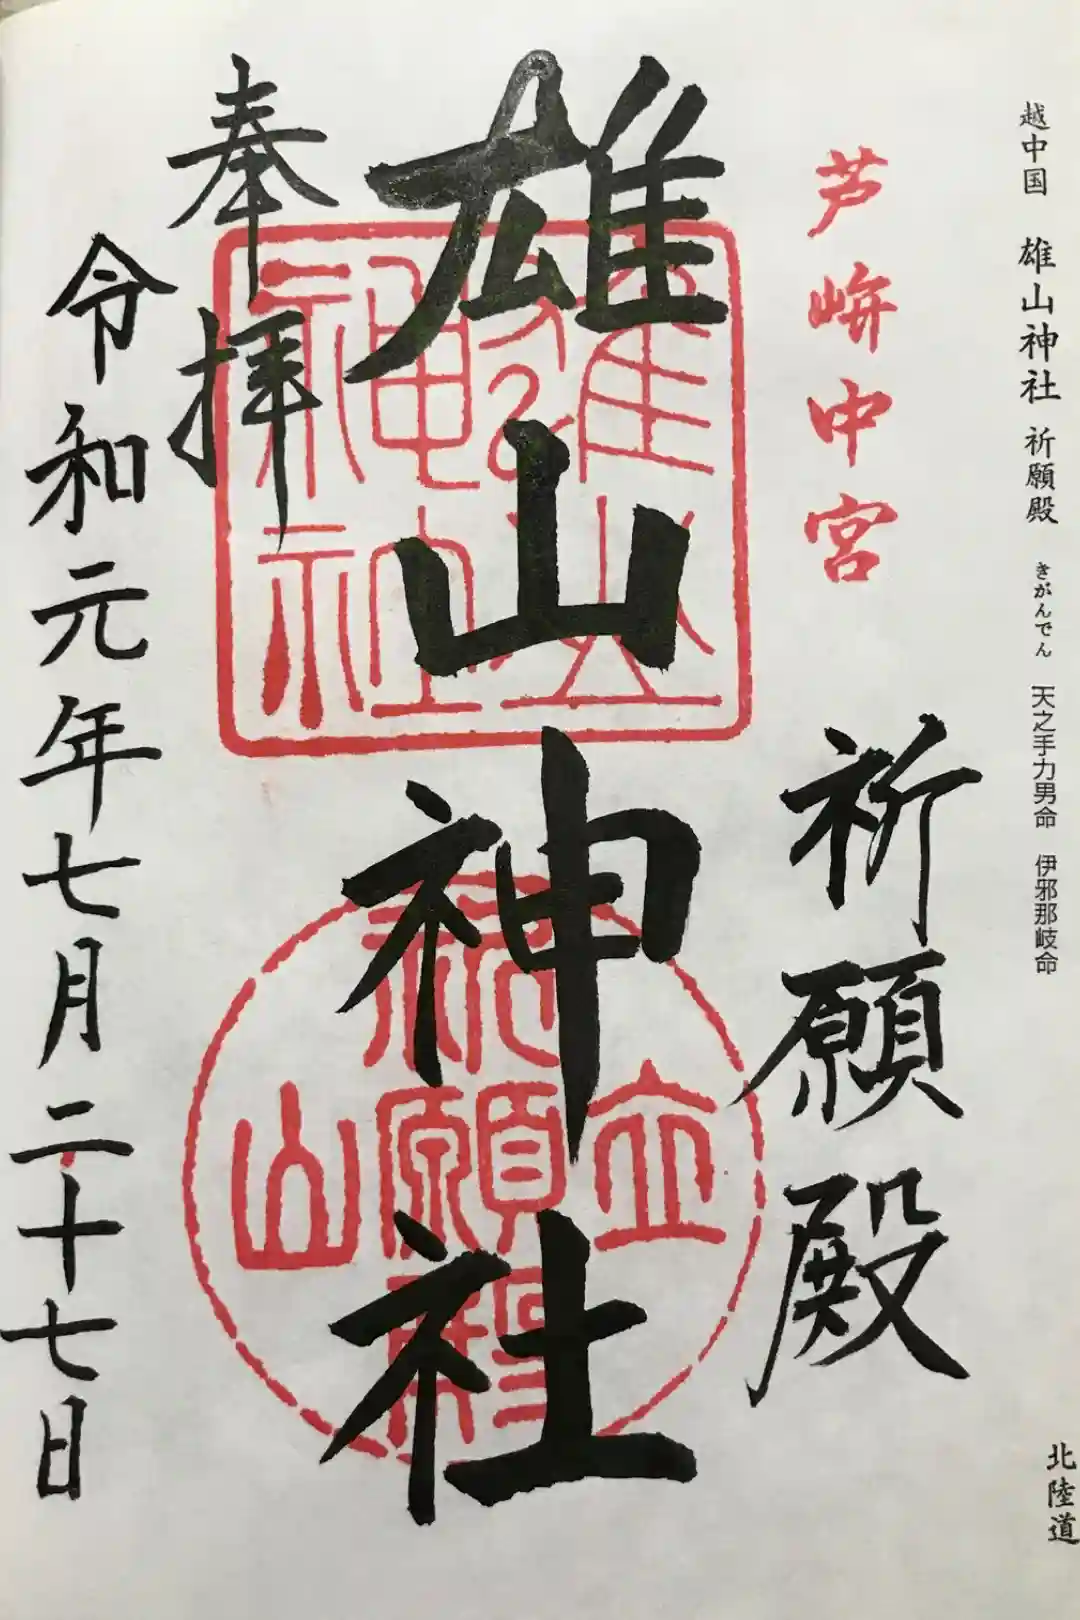 越中国 雄山神社 祈願殿 きがんでん 天之手力男命 伊邪那岐命
北陸道
芦峅中宮
祈願殿
雄山神社
雄山
神社
立山
祈願殿
奉拝
令和元年七月二十七日